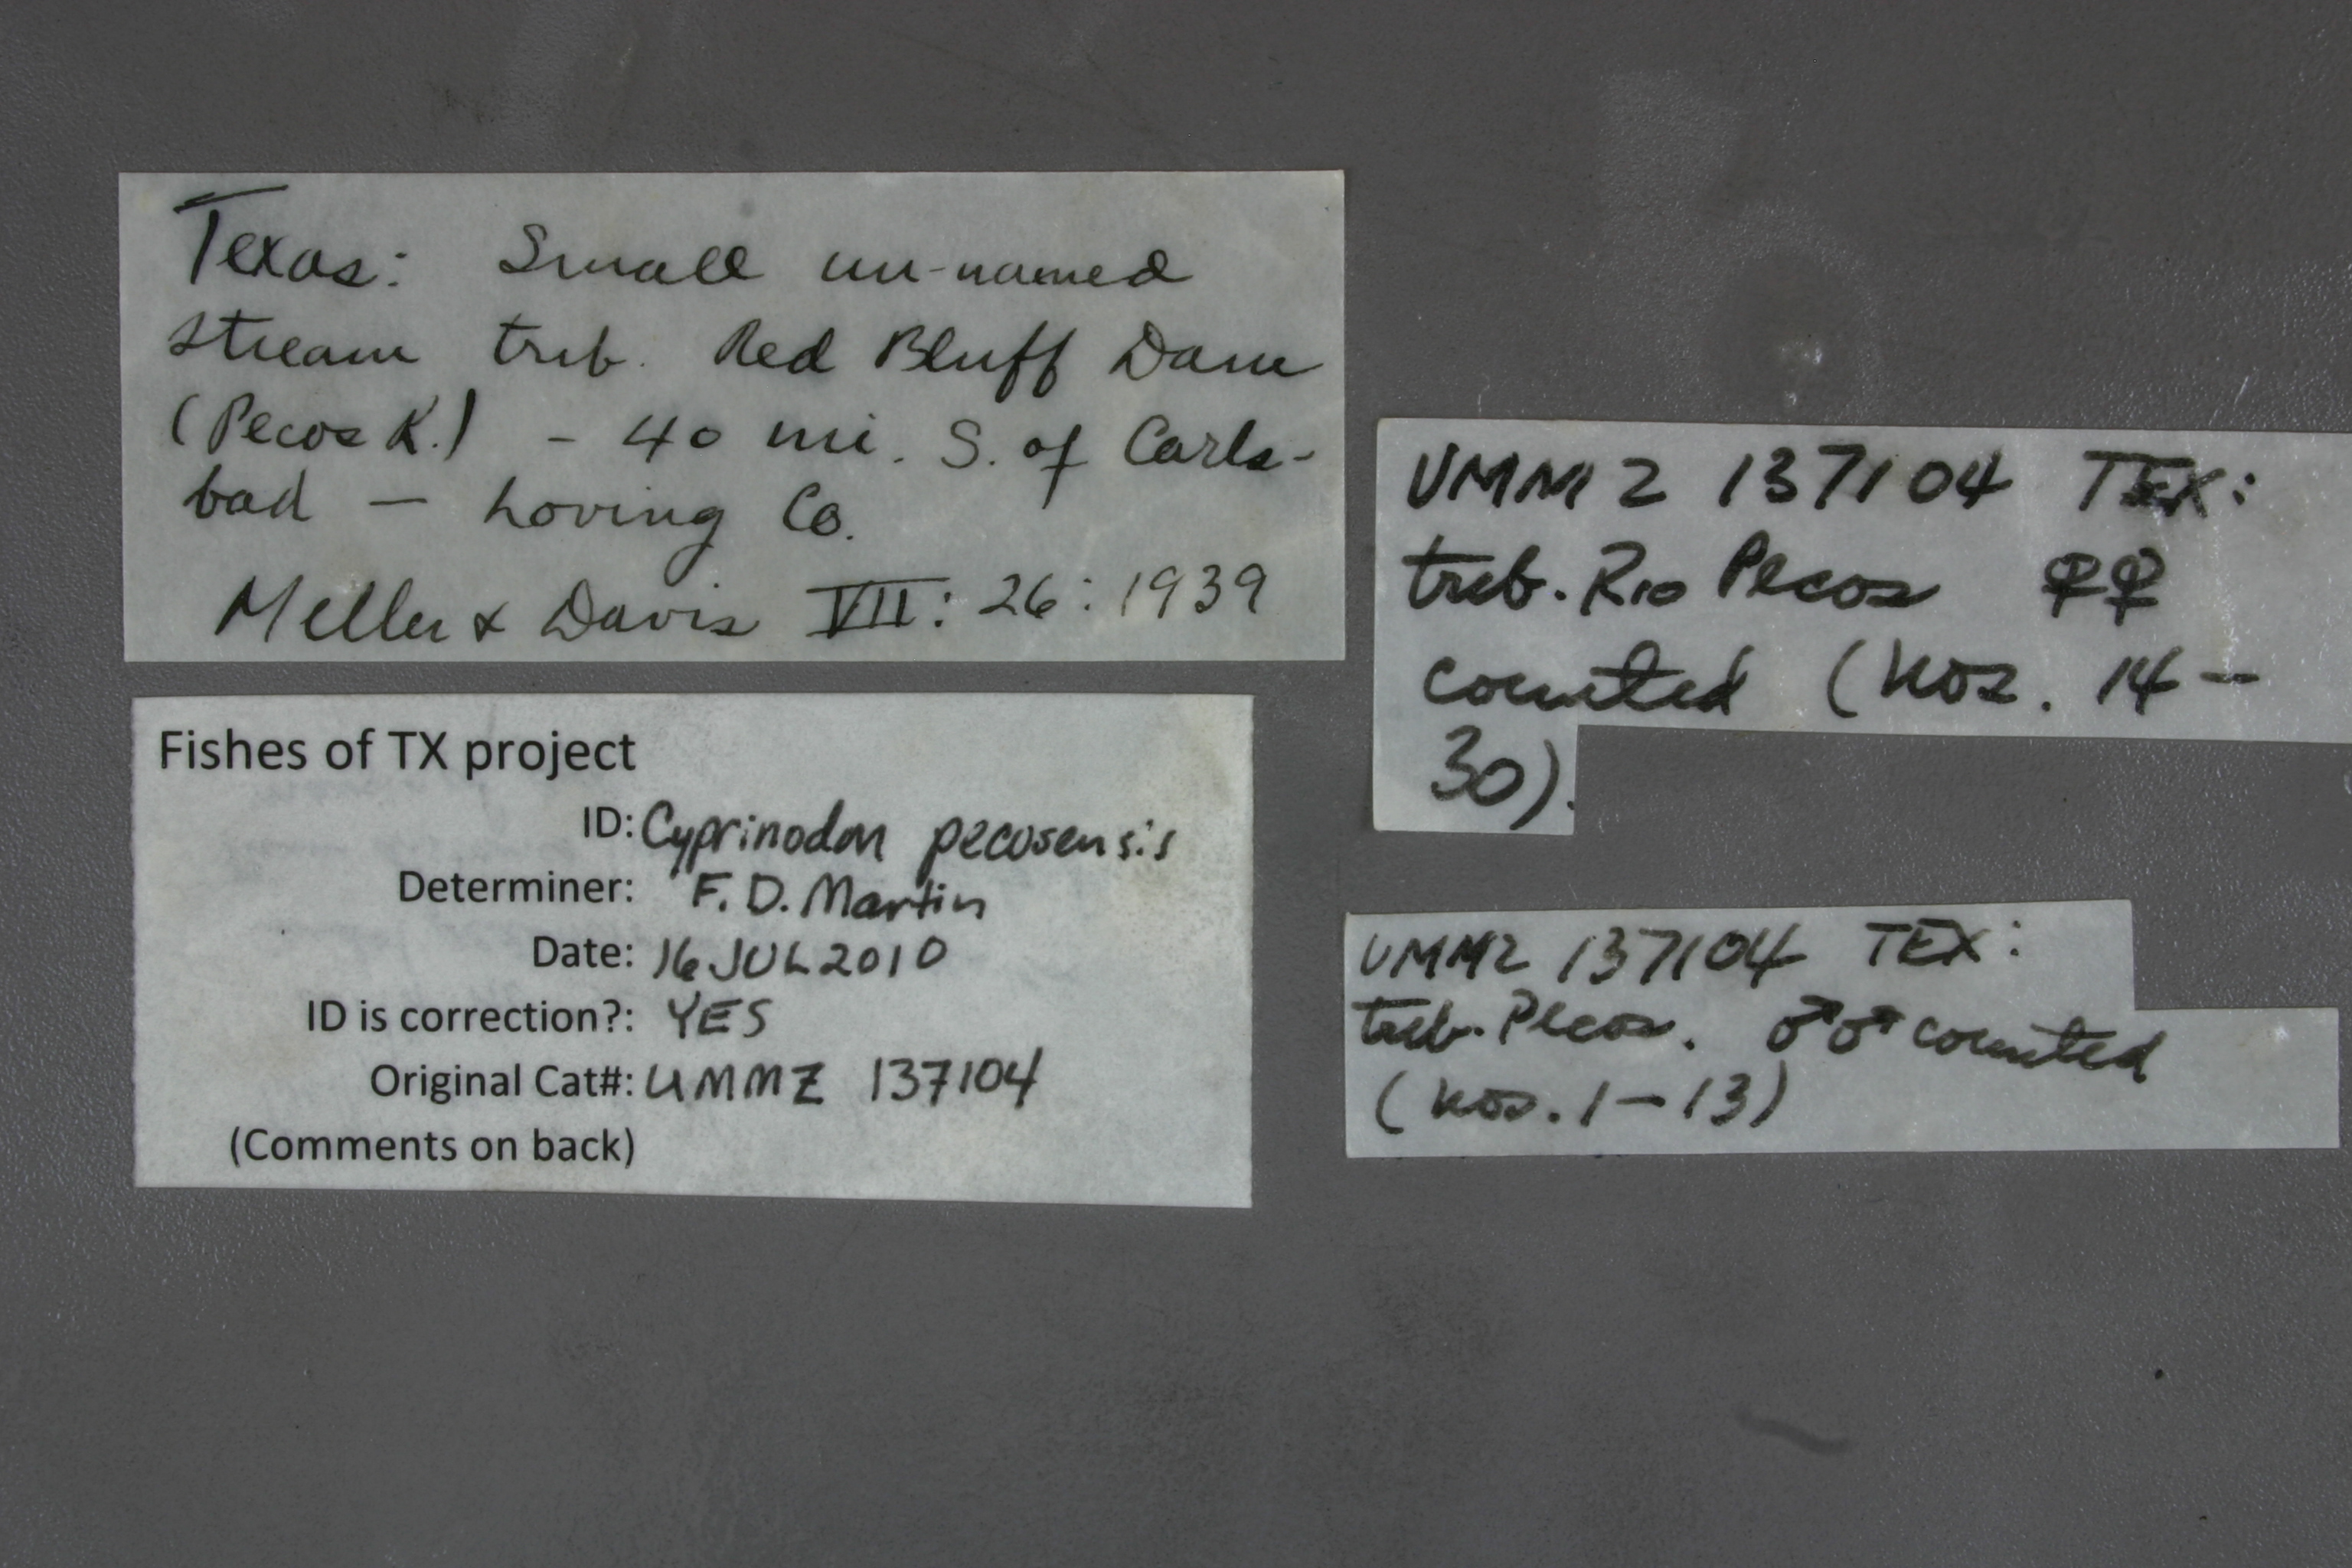 Texas: Small un-named
stream trib. Red Bluff Dam
(Pecos R.) - 40 mi. S. of Carls-
bad - Loving Co.
Meller & Davis VII: 26: 1939
Fishes of TX project
ID: Cyprinodon pecosensis
Determiner: F. D. Martin
Date: 16 JUL 2010
ID is correction?: YES
Original Cat#: UMMZ 137104
(Comments on back)
UMMZ 137104 TEX:
trib. Rio Pecos ♀♀
counted (nos. 14-
30).
UMMZ 137104 TEX:
trib. Pecos. ♂♂ counted
(nos. 1-13)